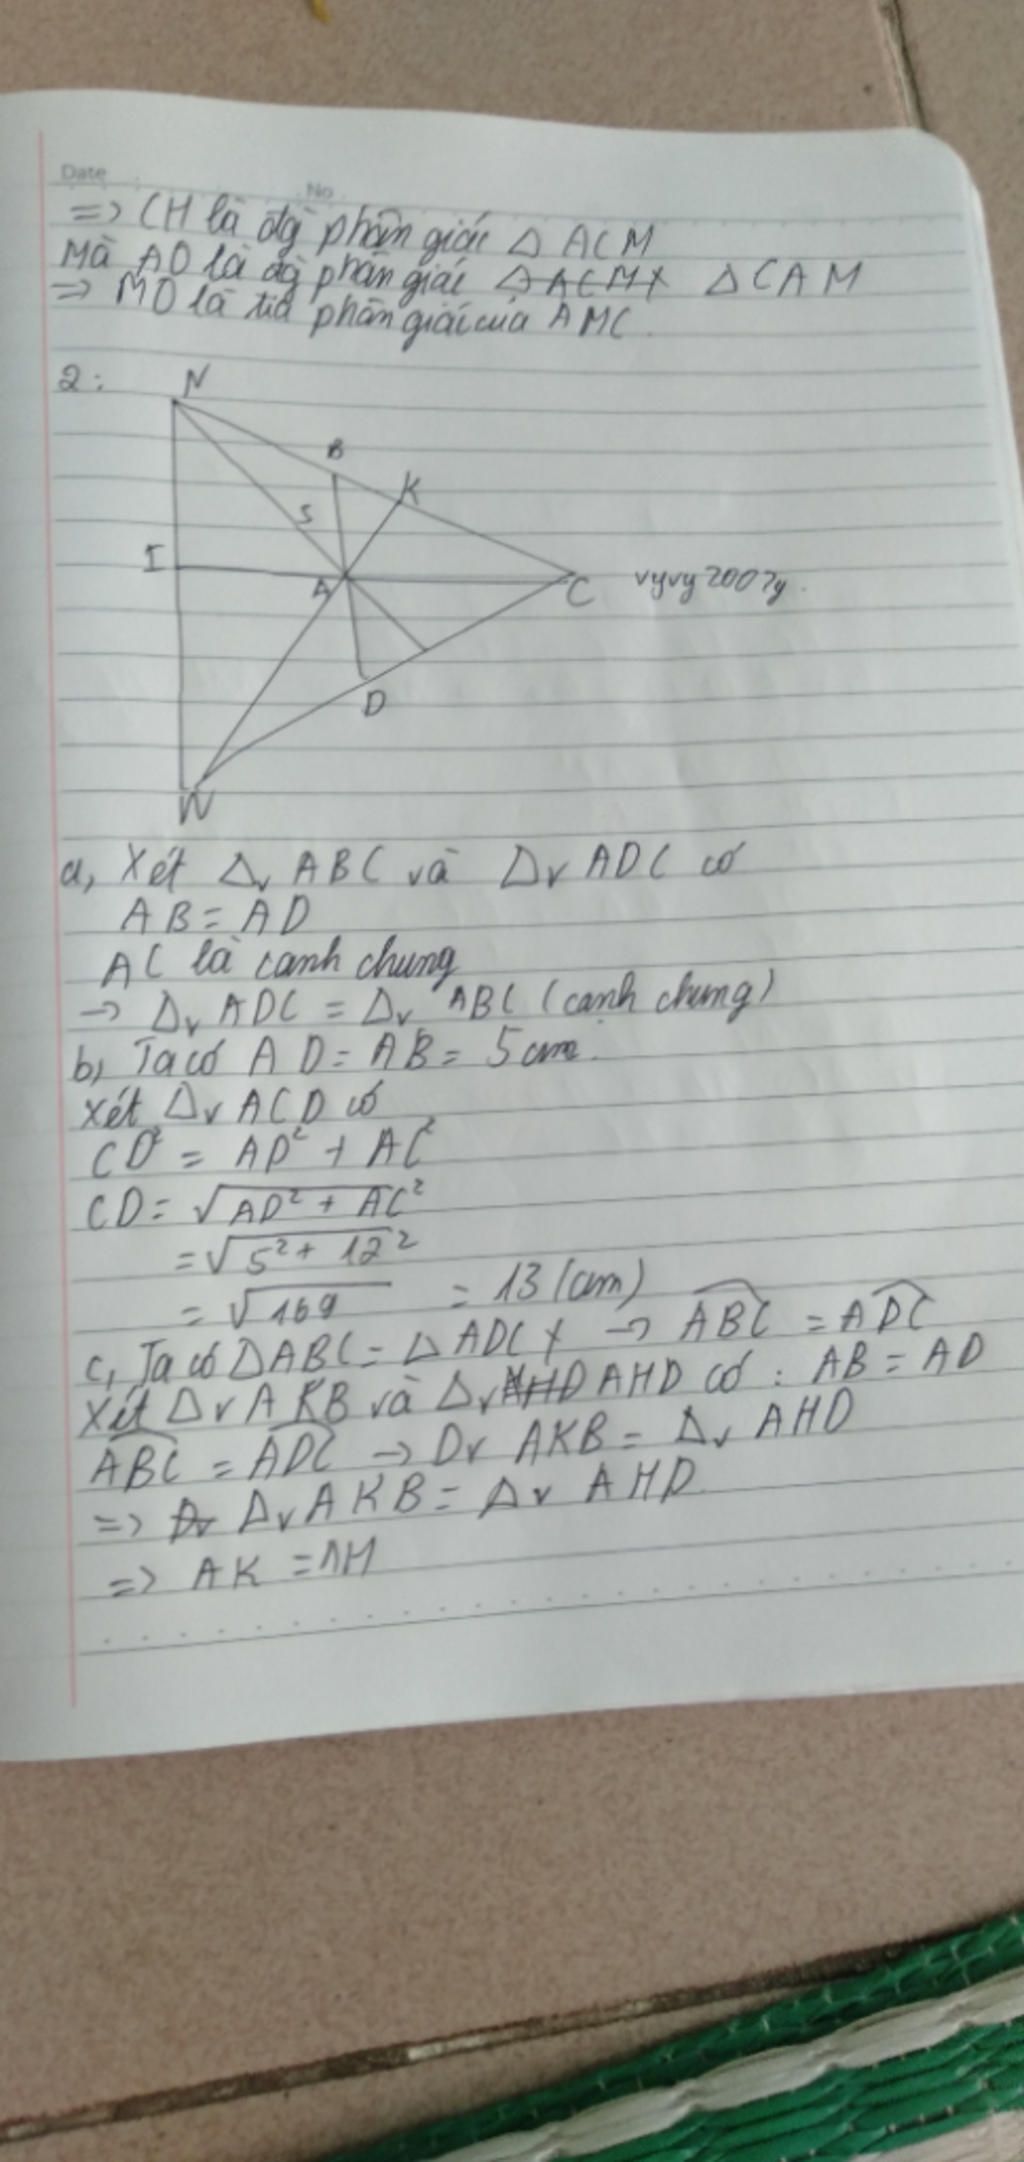 Date
No
=> CH là đg phân giác Δ ACM
Mà AO là đg phân giác ΔACM Δ CAM
=> MO là tia phân giác của AMC.
2:
N
B
K
S
I
A
C
vyvy2007y.
D
W
a, Xét Δv ABC và Δv ADC có
AB = AD
AC là cạnh chung
-> Δv ADC = Δv ABC (cạnh chung)
b, Ta có AD = AB = 5 cm.
Xét Δv ACD có
CD² = AD² + AC²
CD = √AD² + AC²
= √5² + 12²
= √169 = 13 (cm)
c, Ta có ΔABC = Δ ADC -> ABC = ADC
Xét Δv AKB và Δv AHD có : AB = AD
ABC = ADC -> Dv AKB = Δv AHD
=> Δv AKB = Δv AHD
=> AK = AH